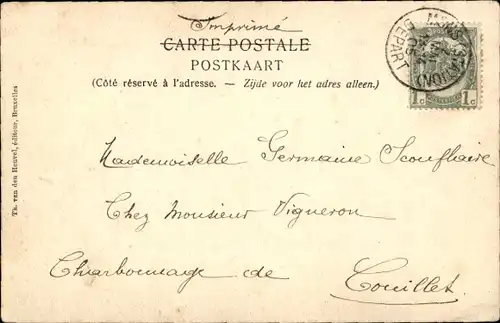 Imprimé
CARTE POSTALE
POSTKAART
(Côté réservé à l'adresse. – Zijde voor het adres alleen.)
MONS (STATION)
DEPART
1c 1c
Th. van den Heuvel, éditeur, Bruxelles
Mademoiselle Germaine Scouflaire
Chez Monsieur Vigneron
Charbonnage de
Couillet